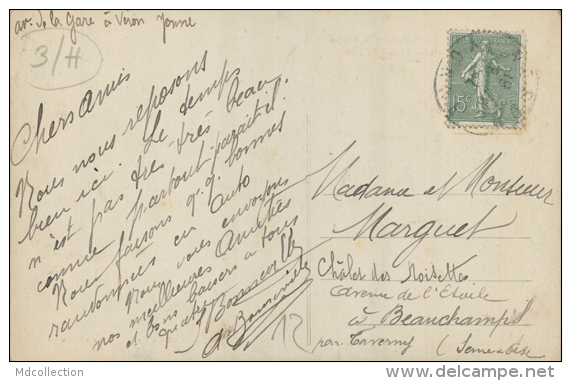 av. d. la Gare à Viron Yonne
3/H
Chers Amis
Nous nous reposons
bien ici. Le temps
n'est pas très très beau,
comme partout paraît-il.
Nous faisons q.q. bonnes
randonnées en auto
Nous vous envoyons
nos meilleures Amitiés
et bons baisers à tous
quatre
15c
Madame et Monsieur
Marguet
Châlet des Noisettes
Avenue de l'Etoile
à Beauchamp
par Taverny (Seine et Oise
12
Mdcollection
www.delcampe.net